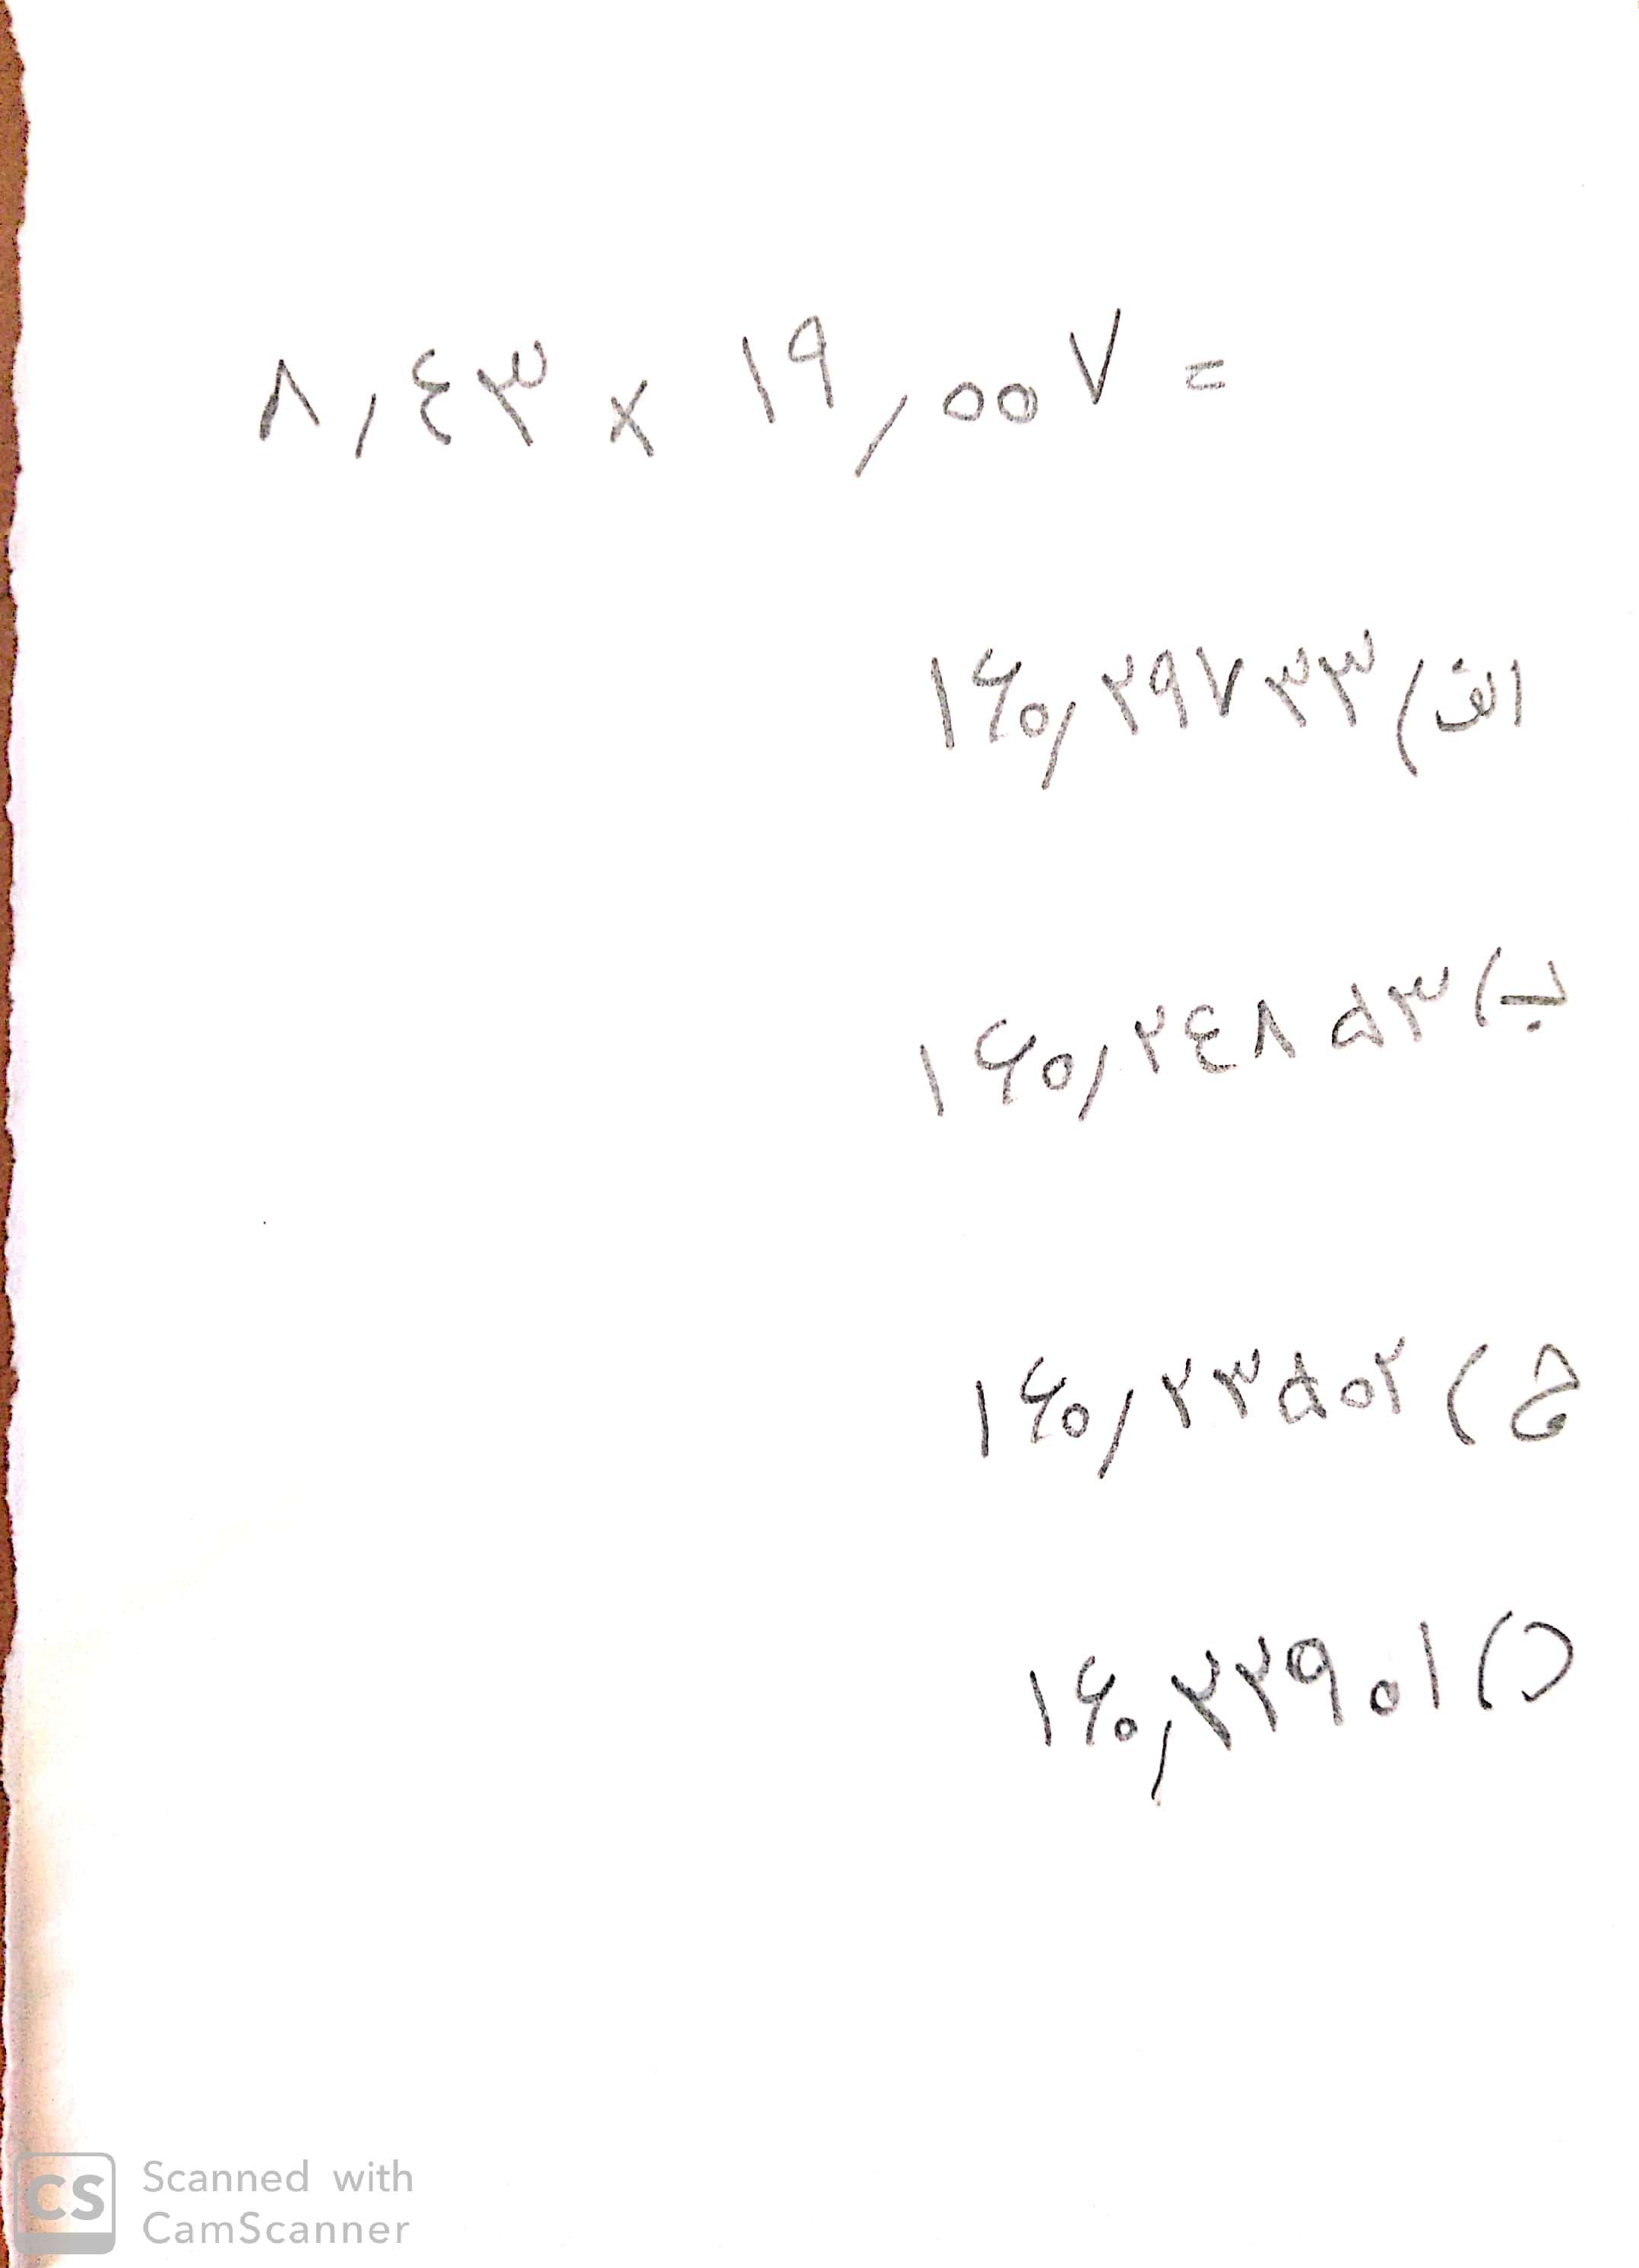 ۸,۴۳ × ۱۹,۰۰۷ =
الف) ۱۶۰,۲۹۷۳۳
ب) ۱۶۰,۲۴۸۵۳
ج) ۱۶۰,۲۳۵۰۲
د) ۱۶۰,۲۲۹۰۱
CS Scanned with
CamScanner